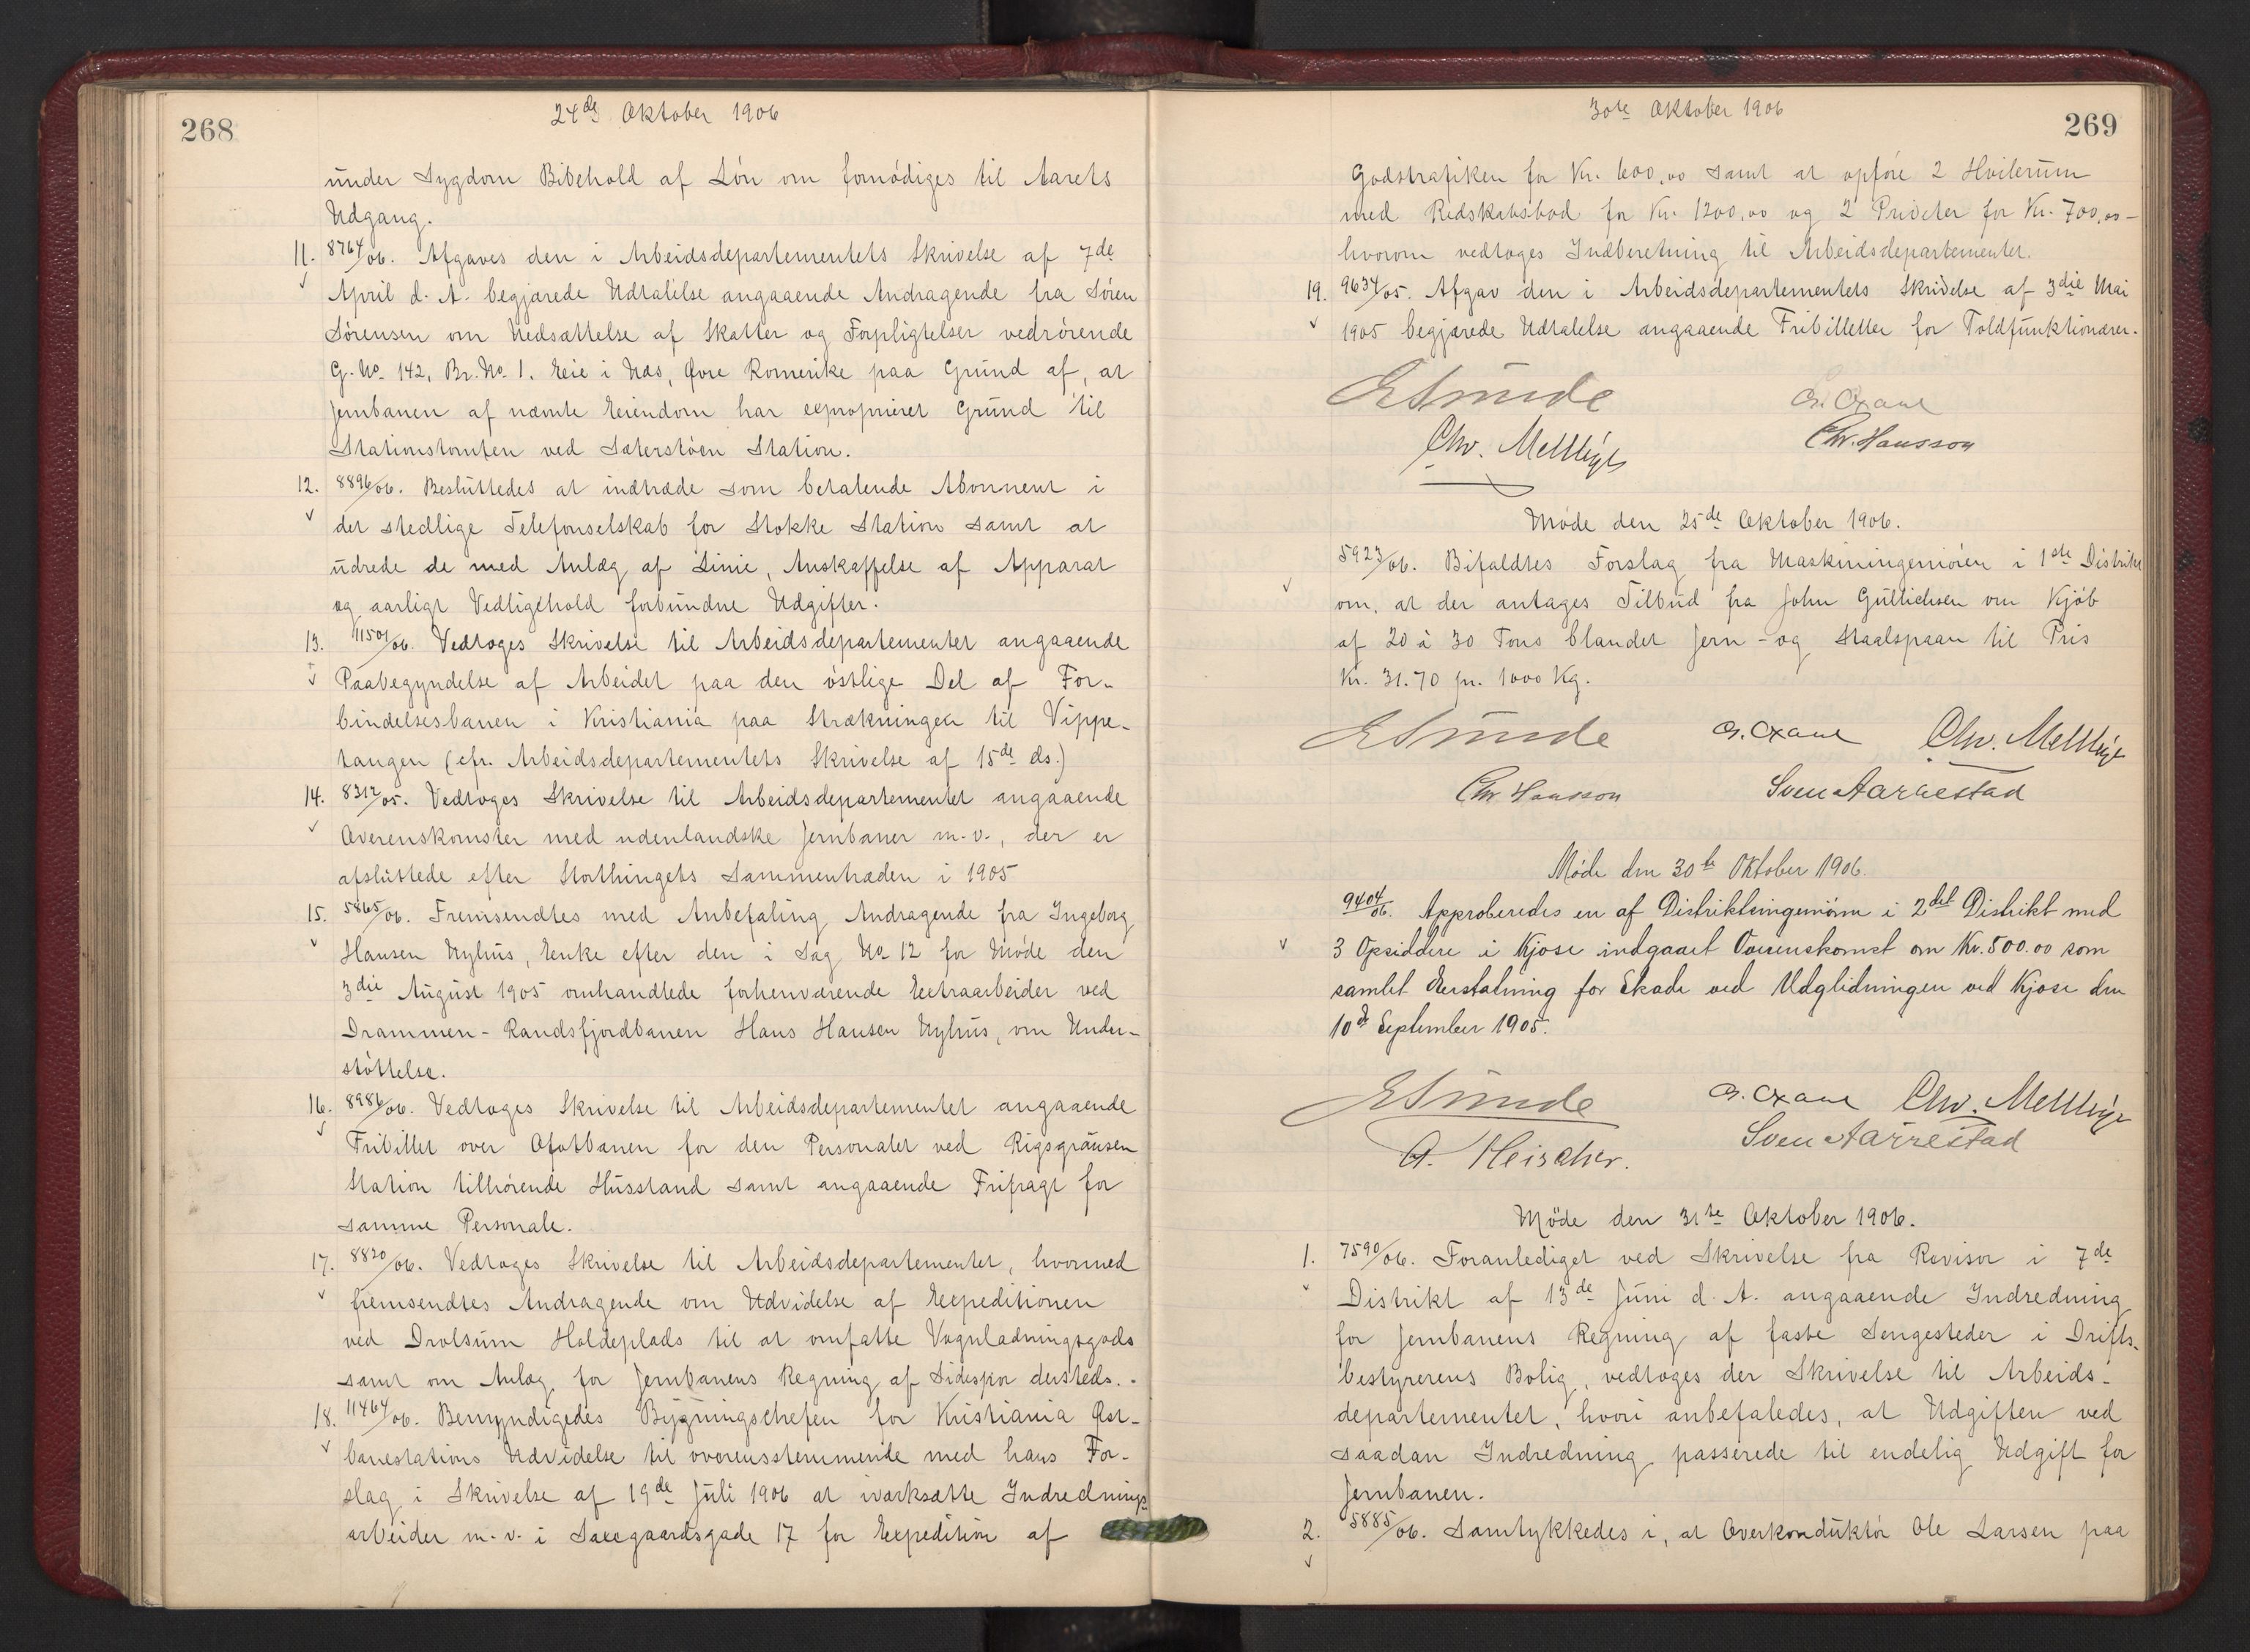 268
24de Oktober 1906
under Sygdom Bibehold af Løn om fornødiges til Aarets
Udgang.
11. 8764/06. Afgaves den i Arbeidsdepartementets Skrivelse af 7de
April d. A. begjærede Udtalelse angaaende Andragende fra Søren
Sørensen om Nedsættelse af Skatter og Forpligtelser vedrørende
G. No. 142, Br. No. 1. Eie i Næs, Øvre Romerike paa Grund af, at
Jernbanen af nævnte Eiendom har exproprieret Grund til
Stationstomten ved Sæterstøen Station.
12. 8896/06. Besluttedes at indtræde som betalende Abonnent i
det stedlige Telefonselskab for Stokke Station samt at
udrede de med Anlæg af Linie, Anskaffelse af Apparat
og aarligt Vedligehold forbundne Udgifter.
13. 11501/06. Vedtoges Skrivelse til Arbeidsdepartementet angaaende
Paabegyndelse af Arbeidet paa den østlige Del af For-
bindelsesbanen i Kristiania paa Strækningen til Vippe-
tangen (cfr. Arbeidsdepartementets Skrivelse af 15de ds.)
14. 8312/05. Vedtoges Skrivelse til Arbeidsdepartementet angaaende
Overenskomster med udenlandske Jernbaner m.v., der er
afsluttede efter Storthingets Sammentræden i 1905
15. 5865/06. Fremsendtes med Anbefaling Andragende fra Ingeborg
Hansen Nyhus, Enke efter den i Sag No 12 for Møde den
3die August 1905 omhandlede forhenværende Extraarbeider ved
Drammen-Randsfjordbanen Hans Hansen Nyhus, om Under-
støttelse.
16. 8986/06. Vedtoges Skrivelse til Arbeidsdepartementet angaaende
Fribillet over Ofotbanen for den Personalet ved Rigsgränsen
Station tilhørende Husstand samt angaaende Frifragt for
samme Personale.
17. 8820/06. Vedtoges Skrivelse til Arbeidsdepartementet, hvormed
fremsendtes Andragende om Udvidelse af Expeditionen
ved Drolsum Holdeplads til at omfatte Vognladningsgods
samt om Anlæg for Jernbanens Regning af Sidespor dersteds.
18. 11464/06. Bemyndigedes Bygningschefen for Kristiania Øst-
banestations Udvidelse til overensstemmende med hans For-
slag i Skrivelse af 19de Juli 1906 at iværksætte Indrednings-
arbeider m.v. i Saxegaardsgade 17 for Expedition af
30te Oktober 1906
269
Godstrafiken for Kr. 600,00 samt at opføre 2 Hvilerum
med Redskabsbod for Kr. 1200,00 og 2 Priveter for Kr. 700,00 -
hvorom vedtoges Indberetning til Arbeidsdepartementet.
19. 9634/05. Afgav den i Arbeidsdepartementets Skrivelse af 3die Mai
1905 begjærede Udtalelse angaaende Fribilletter for Toldfunktionærer.
E Sunde
Chr. Hansson
Møde den 25de Oktober 1906.
5923/06. Bifaldtes Forslag fra Maskiningeniøren i 1ste Distrikt
om, at der antages Tilbud fra John Gullichsen om Kjøb
af 20 à 30 Tons blandet Jern- og Staalspaan til Pris
Kr. 31.70 pr. 1000 Kg.
E Sunde
Chr Hansson Sven Aarrestad
Møde den 30te Oktober 1906.
9404/06. Approberedes en af Distriktsingeniøren i 2det Distrikt med
3 Opsiddere i Kjose indgaaet Overenskomst om Kr. 500.00 som
samlet Erstatning for Skade ved Udglidningen ved Kjose den
10de September 1905.
E Sunde
Sven Aarrestad
Møde den 31te Oktober 1906.
1. 7590/06. Foranlediget ved Skrivelse fra Revisor i 7de
Distrikt af 13de Juni d. A. angaaende Indredning
for Jernbanens Regning af faste Sengesteder i Drifts-
bestyrerens Bolig, vedtoges der Skrivelse til Arbeids-
departementet, hvori anbefaledes, at Udgiften ved
saadan Indredning passerede til endelig Udgift for
Jernbanen.
2. 5885/06. Samtykkedes i, at Overkonduktør Ole Larsen paa